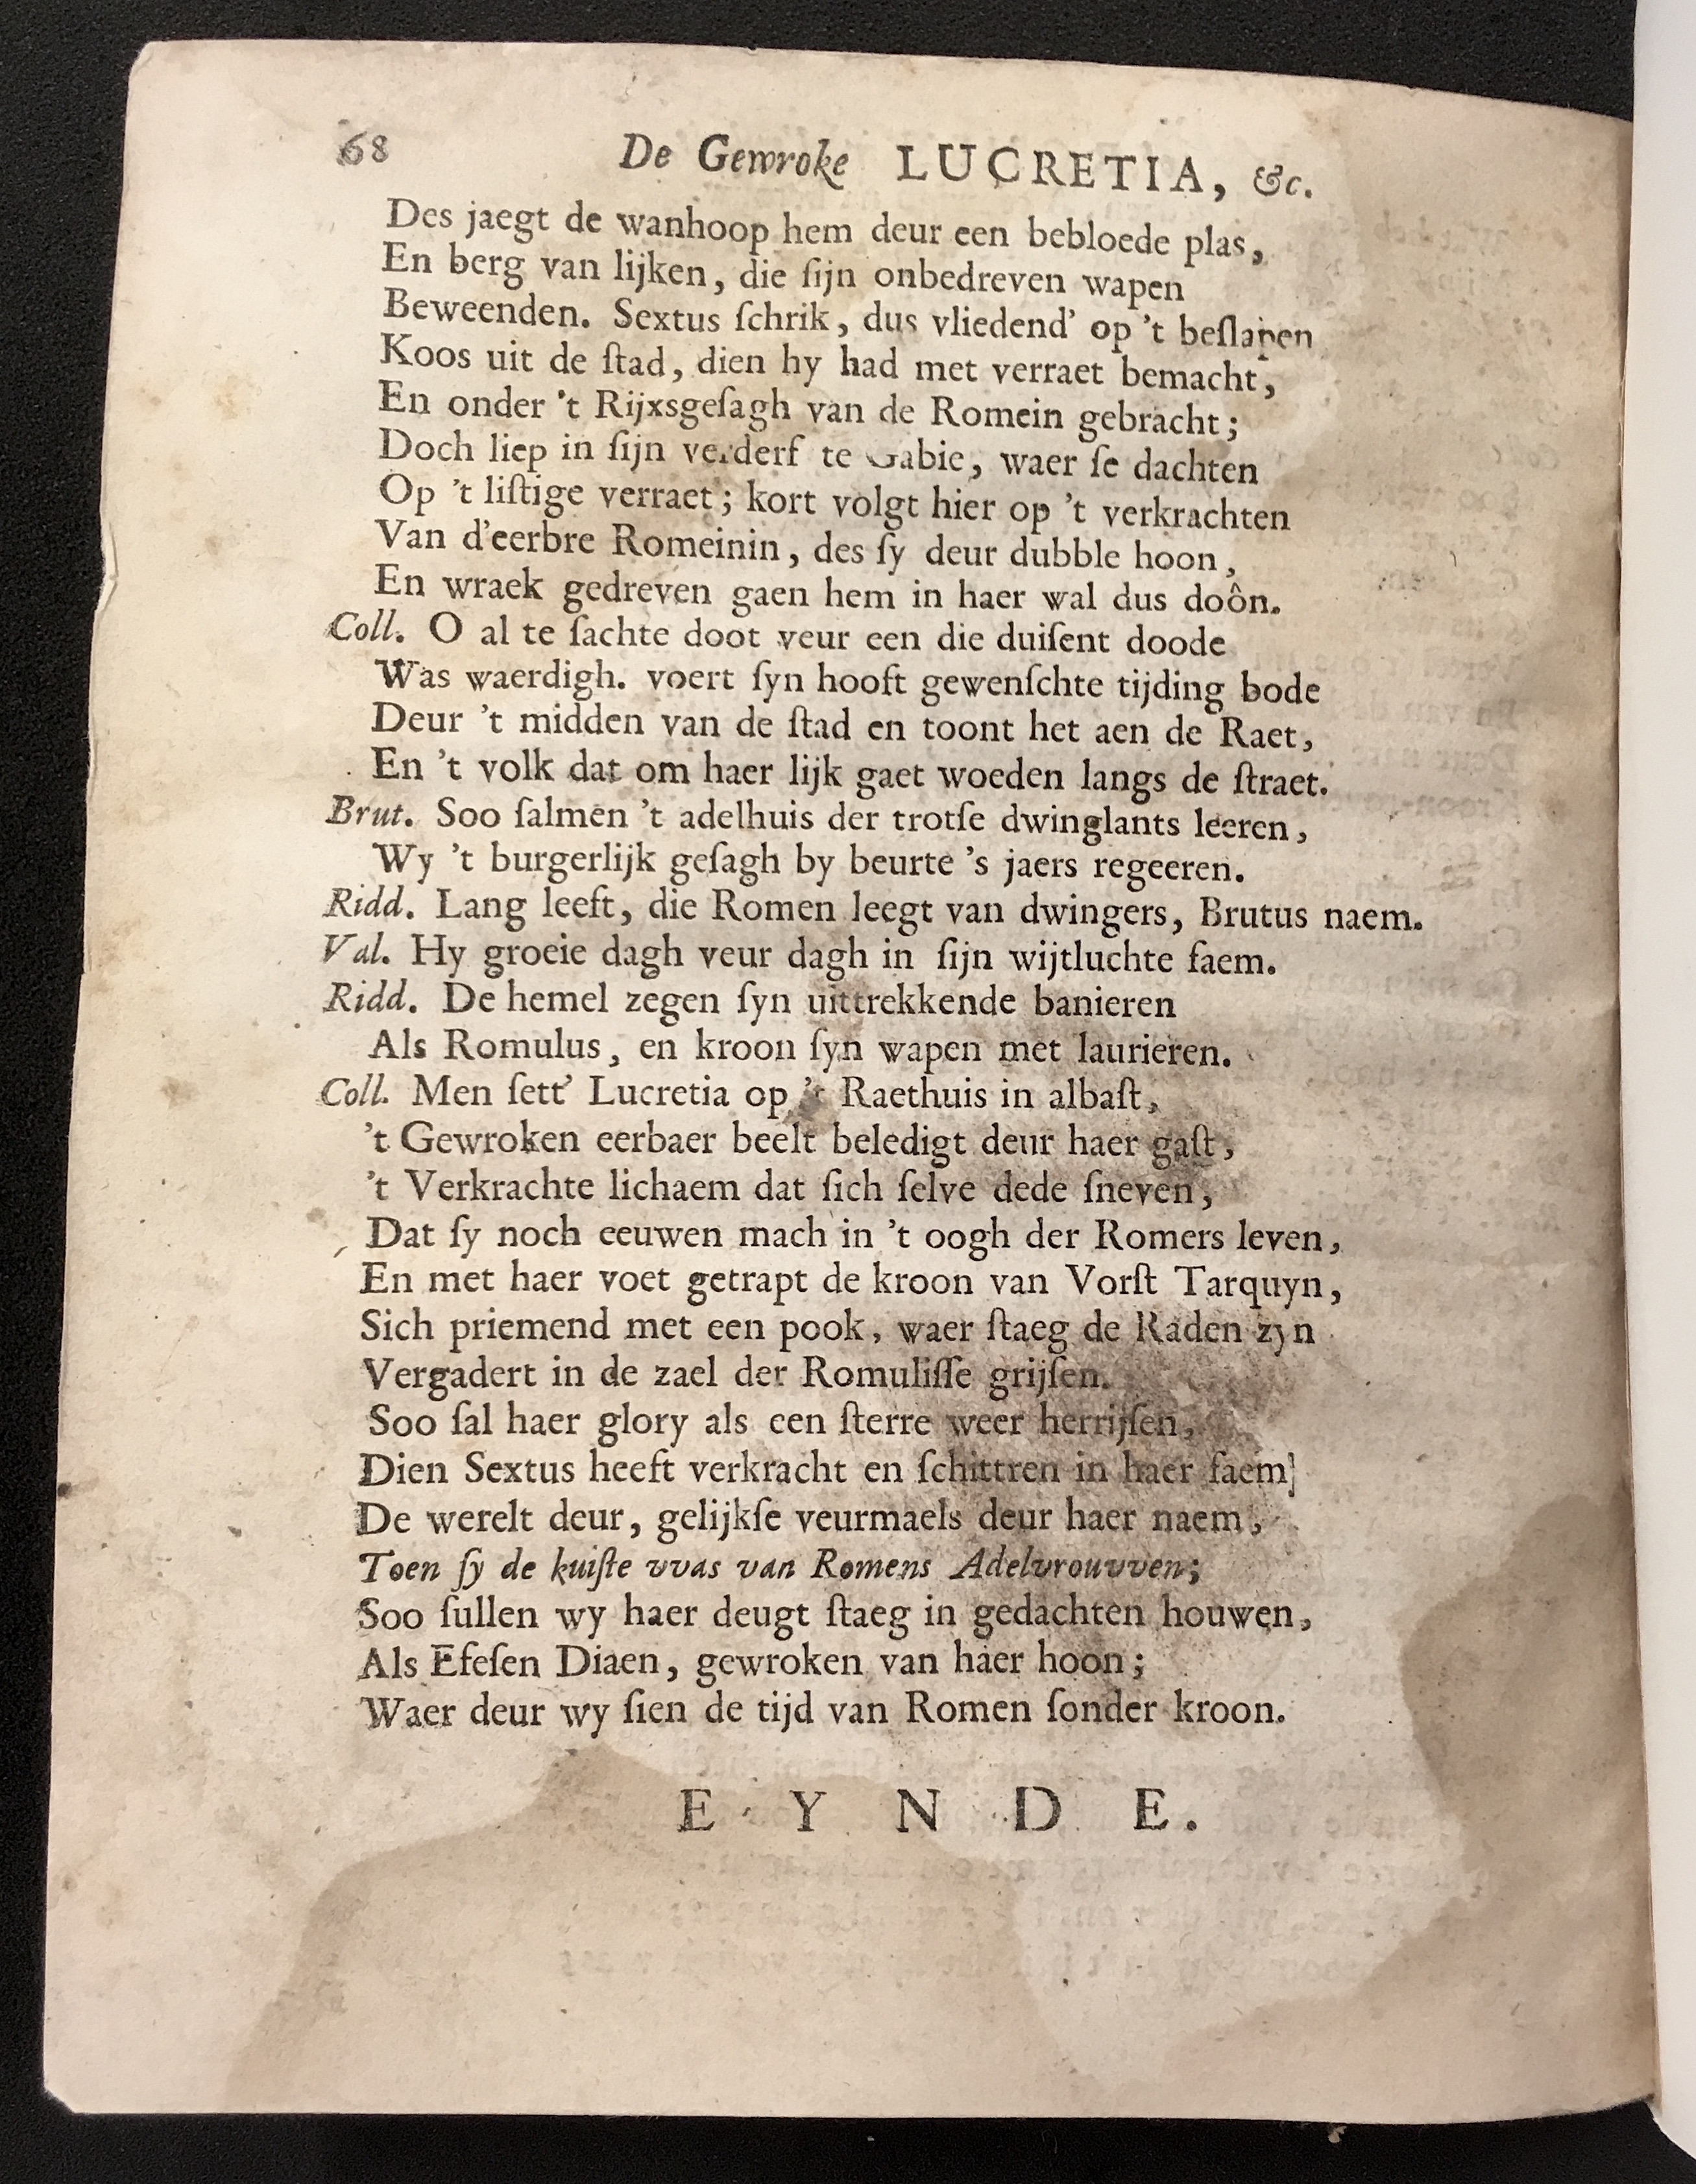 68 De Gewroke LUCRETIA, &c.
Des jaegt de wanhoop hem deur een bebloede plas,
En berg van lijken, die ſijn onbedreven wapen
Beweenden. Sextus ſchrik, dus vliedend' op 't beſlapen
Koos uit de ſtad, dien hy had met verraet bemacht,
En onder 't Rijxsgeſagh van de Romein gebracht;
Doch liep in ſijn verderf te Gabie, waer ſe dachten
Op 't liſtige verraet; kort volgt hier op 't verkrachten
Van d'eerbre Romeinin, des ſy deur dubble hoon,
En wraek gedreven gaen hem in haer wal dus doôn.
Coll. O al te ſachte doot veur een die duiſent doode
Was waerdigh. voert ſyn hooft gewenſchte tijding bode
Deur 't midden van de ſtad en toont het aen de Raet,
En 't volk dat om haer lijk gaet woeden langs de ſtraet.
Brut. Soo ſalmen 't adelhuis der trotſe dwinglants leeren,
Wy 't burgerlijk geſagh by beurte 's jaers regeeren.
Ridd. Lang leeft, die Romen leegt van dwingers, Brutus naem.
Val. Hy groeie dagh veur dagh in ſijn wijtluchte faem.
Ridd. De hemel zegen ſyn uittrekkende banieren
Als Romulus, en kroon ſyn wapen met laurieren.
Coll. Men ſett' Lucretia op 't Raethuis in albaſt,
't Gewroken eerbaer beelt beledigt deur haer gaſt,
't Verkrachte lichaem dat ſich ſelve dede ſneven,
Dat ſy noch eeuwen mach in 't oogh der Romers leven,
En met haer voet getrapt de kroon van Vorſt Tarquyn,
Sich priemend met een pook, waer ſtaeg de Raden zyn
Vergadert in de zael der Romuliſſe grijſen.
Soo ſal haer glory als een ſterre weer herrijſen,
Dien Sextus heeft verkracht en ſchittren in haer faem]
De werelt deur, gelijkſe veurmaels deur haer naem,
Toen ſy de kuiſte vvas van Romens Adelvrouvven;
Soo ſullen wy haer deugt ſtaeg in gedachten houwen,
Als Efeſen Diaen, gewroken van haer hoon;
Waer deur wy ſien de tijd van Romen ſonder kroon.
E Y N D E.